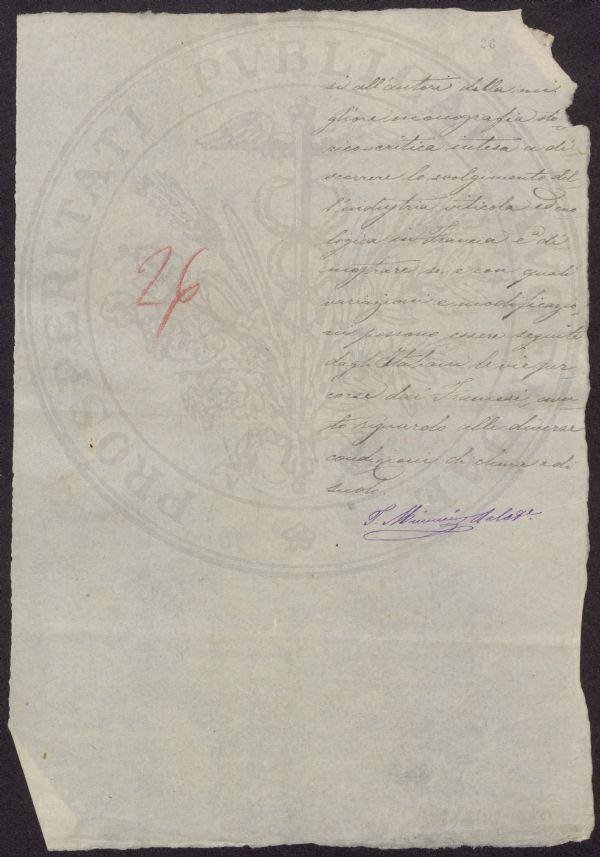 26
si all'autore della mi
gliore monografia sto-
rico-critica intesa a di-
scorrere lo svolgimento del
l'industria viticola ed eno
logica in Francia e a di
mostrare se e con quali
variazioni e modificazio-
ni possono essere seguite
dagli Italiani le vie per
corse dai Francesi, avu
to riguardo alle diverse
condizioni di clima e di
suolo.
26
PROSPERITATI PVBLICAE